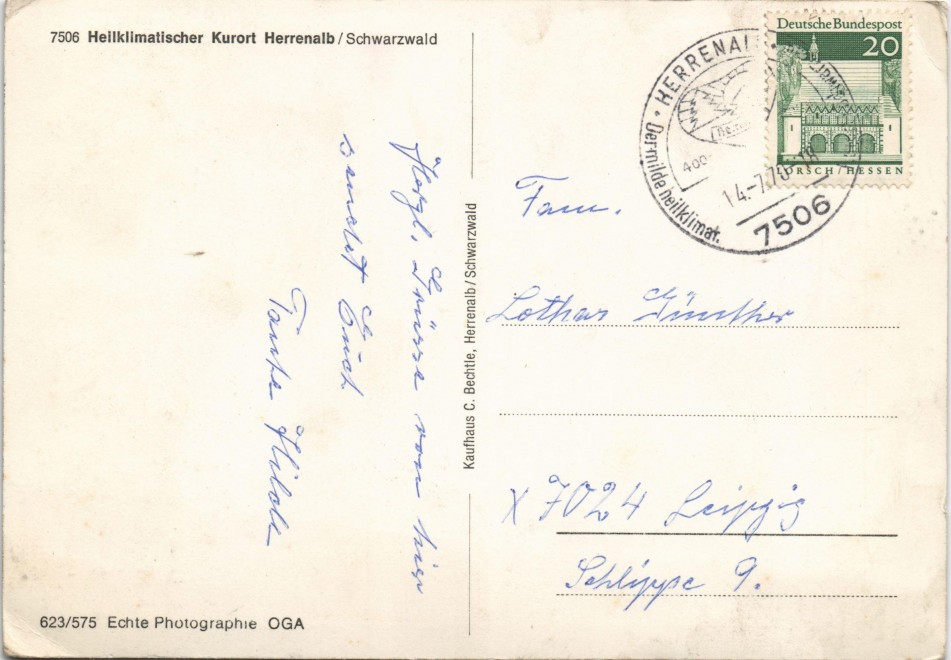 7506 Heilklimatischer Kurort Herrenalb/Schwarzwald
Herzl. Grüsse von hier
sendet Euch
Tante Hilde
623/575 Echte Photographie OGA
Kaufhaus C. Bechtle, Herrenalb/Schwarzwald
Deutsche Bundespost
20
LORSCH/HESSEN
HERRENAL
Der milde heilklimat.
400
14.-7.70-18
7506
Fam.
Lothar Günther
X 7024 Leipzig
Schlippe 9.